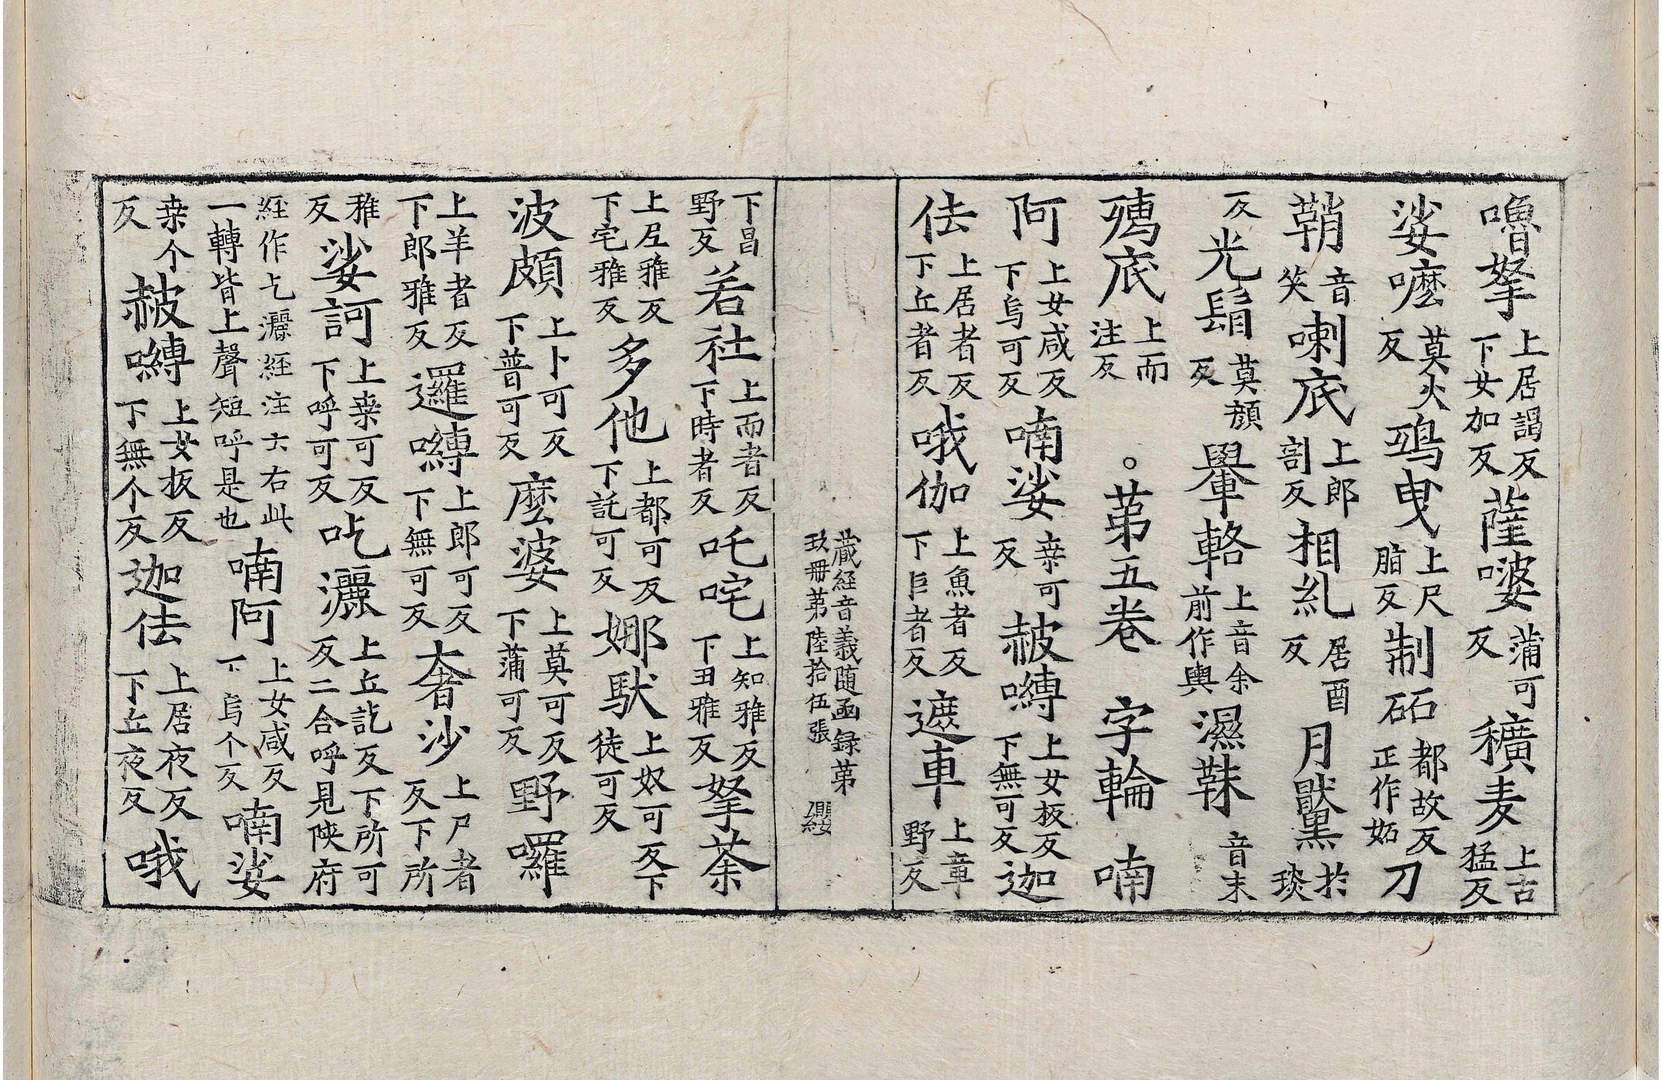 嚕拏上居謁反下女加反薩婆蒲可反穬麦上古猛反
娑嚒莫火反鵶曳上尺脂反制砳都故反正作妬刀
鞘音笑喇底上郎割反相糺居酉反月黶於琰
反光鬚莫顏反轝輅上音余前作輿濕靺音末
殢底上而注反。苐五卷 字輪 喃
阿上女咸反下烏可反喃娑桒可反赧嚩上女扳反下無可反迦
佉上居者反下丘者反哦伽上魚者反下巨者反遮車上章野反
藏経音義随函録苐
玖冊苐陸拾伍張
下昌野反若社上而者反下時者反吒咤上知雅反下丑雅反拏荼
上女雅反下宅雅反多他上都可反下託可反娜馱上奴可反下徒可反
波頗上卜可反下普可反麼婆上莫可反下蒲可反野囉
上羊者反下郎雅反邏嚩上郎可反下無可反奢沙上尸者反下所
雅反娑訶上桒可反下呼可反吃灑上丘訖反下所可反二合呼見陝府
経作乞灑経注云右此一轉皆上聲短呼是也喃阿上女咸反下烏个反喃娑
桒个反赧嚩上女扳反下無个反迦佉上居夜反下丘夜反哦